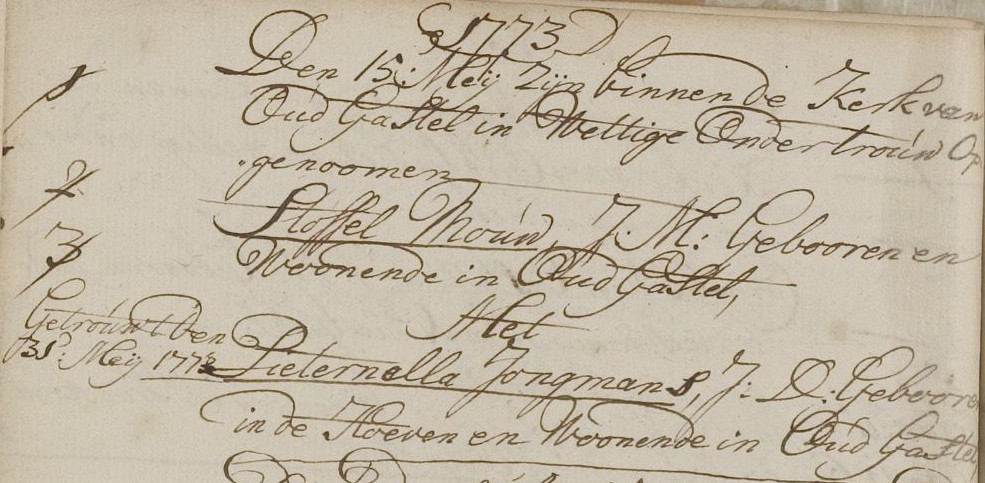 1773
Den 15: Meij Zijn binnen de Kerk van
Oud Gastel in Wettige Ondertrouw Op
genoomen
Stoffel Mouw, J: M: Gebooren en
Woonende in Oud Gastel,
Met
Pieternella Jongmans, J: D: Geboore
in de Hoeven en Woonende in Oud Gastel,
1
2
3
Getrouwt Den
31: Meij 1773